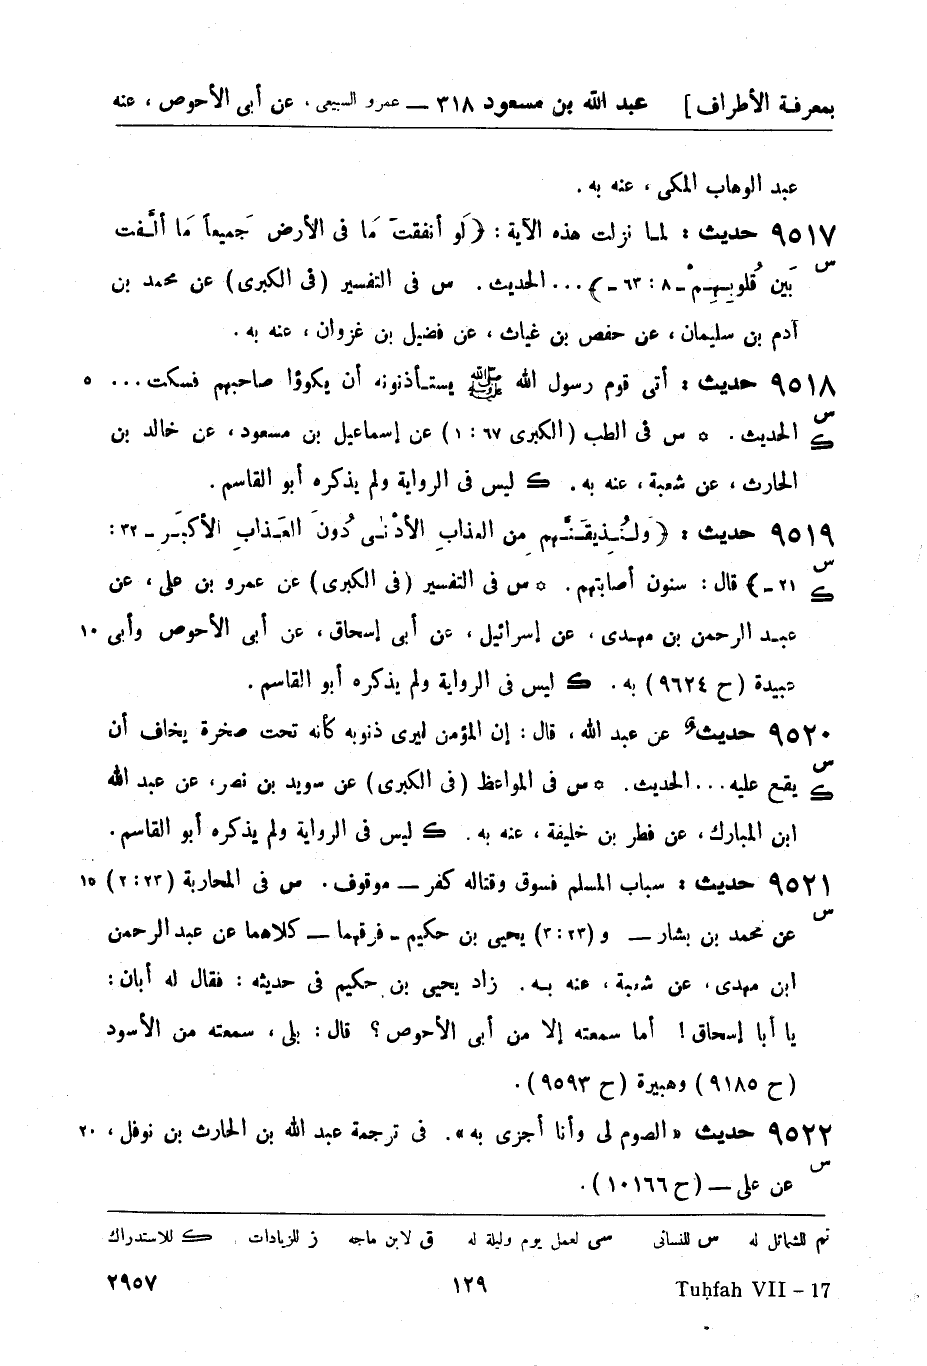 بمعرفة الأطراف] عبد الله بن مسعود ٣١٨ — عمرو السبيعى، عن أبى الأحوص، عنه
عبد الوهاب المكى، عنه به.
٩٥١٧ حديث: لما نزلت هذه الآية: {لَو أنفقتَ مَا فى الأرض جَميعاً مَا ألَّفت
س بَين قُلوبِهِمْ ـ ٨ : ٦٣ ـ}... الحديث. س فى التفسير (فى الكبرى) عن محمد بن
آدم بن سليمان، عن حفص بن غياث، عن فضيل بن غزوان، عنه به.
٩٥١٨ حديث: أتى قوم رسول الله ﷺ يستأذنونه أن يكووُا صاحبهم فسكت... ٥
س ك الحديث. * س فى الطب (الكبرى ٦٧ : ١) عن إسماعيل بن مسعود، عن خالد بن
الحارث، عن شعبة، عنه به. ك ليس فى الرواية ولم يذكره أبو القاسم.
٩٥١٩ حديث: {وَلَنُذيقَنَّهم مِن العذابِ الأدْنٰى دُونَ العَذابِ الأكبَر ـ ٣٢ :
س ك ٢١ ـ} قال: سنون أصابتهم. * س فى التفسير (فى الكبرى) عن عمرو بن على، عن
عبد الرحمن بن مهدى، عن إسرائيل، عن أبى إسحاق، عن أبى الأحوص وأبى ١٠
عبيدة (ح ٩٦٢٤) به. ك ليس فى الرواية ولم يذكره أبو القاسم.
٩٥٢٠ حديث عن عبد الله، قال: إن المؤمن ليرى ذنوبه كأنه تحت صخرة يخاف أن
س ك يقع عليه... الحديث. * س فى المواعظ (فى الكبرى) عن سويد بن نصر، عن عبد الله
ابن المبارك، عن فطر بن خليفة، عنه به. ك ليس فى الرواية ولم يذكره أبو القاسم.
٩٥٢١ حديث: سباب المسلم فسوق وقتاله كفر — موقوف. س فى المحاربة (٢٣ : ٢) ١٥
س عن محمد بن بشار — و (٢٣ : ٣) يحيى بن حكيم ـ فرقهما — كلاهما عن عبد الرحمن
ابن مهدى، عن شعبة، عنه به. زاد يحيى بن حكيم فى حديثه: فقال له أبان:
يا أبا إسحاق! أما سمعته إلا من أبى الأحوص؟ قال: بلى، سمعته من الأسود
(ح ٩١٨٥) وهبيرة (ح ٩٥٩٣).
٩٥٢٢ حديث «الصوم لى وأنا أجزى به». فى ترجمة عبد الله بن الحارث بن نوفل، ٢٠
س عن على — (ح ١٠١٦٦).
تم للشمائل له س للنسائى سى لعمل يوم وليلة له ق لابن ماجه ز للزيادات ك للاستدراك
٢٩٥٧ ١٢٩ Tuḥfah VII – 17